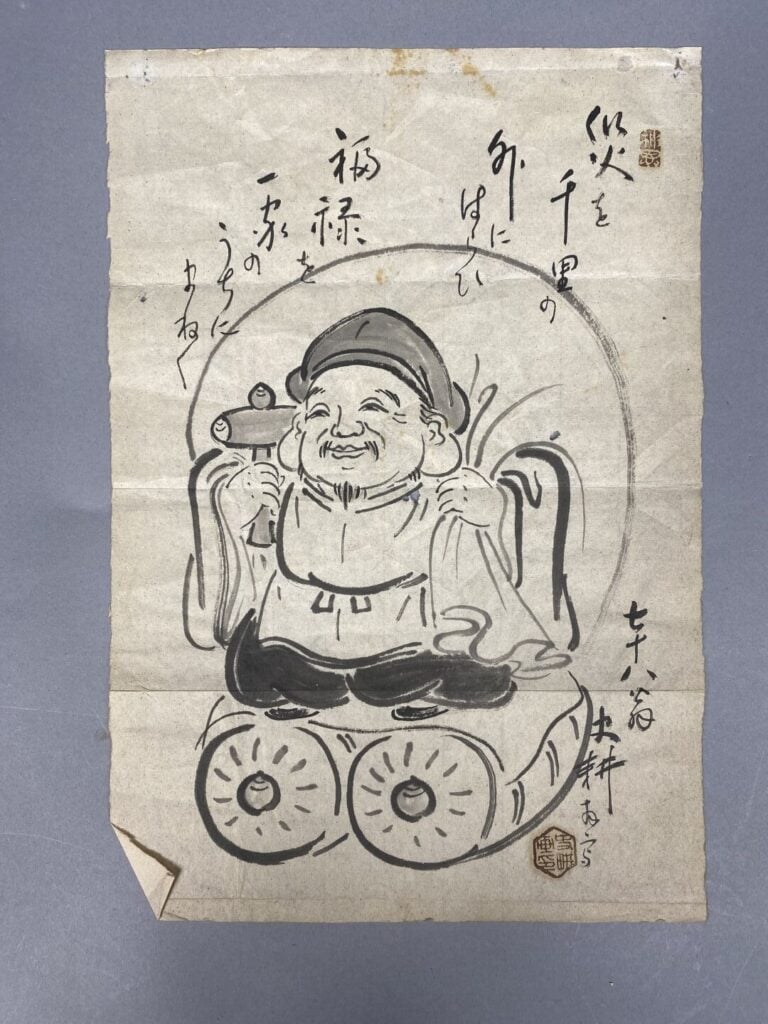 災を
千里の
外に
はらひ
福禄を
一家の
うちに
まねく
七十八翁
史耕